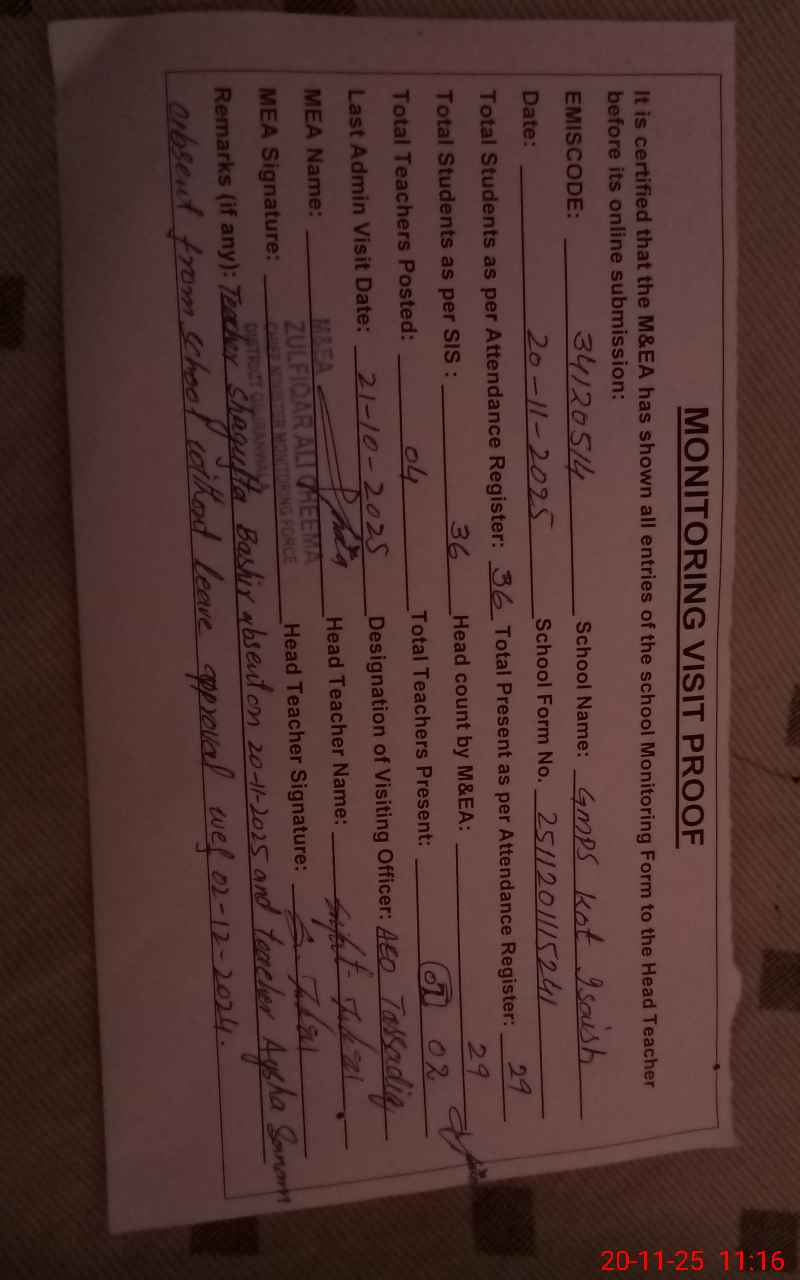 MONITORING VISIT PROOF
It is certified that the M&EA has shown all entries of the school Monitoring Form to the Head Teacher
before its online submission:
EMISCODE: 34120514 School Name: GMPS Kot Isaish
Date: 20-11-2025 School Form No. 2511201115241
Total Students as per Attendance Register: 36 Total Present as per Attendance Register: 29
Total Students as per SIS : 36 Head count by M&EA: 29
Total Teachers Posted: 04 Total Teachers Present: 02
Last Admin Visit Date: 21-10-2025 Designation of Visiting Officer: AEO Tassadiq
MEA Name: Head Teacher Name:
M&EA
ZULFIQAR ALI CHEEMA
CHIEF MINISTER MONITORING FORCE
DISTRICT
MEA Signature: Head Teacher Signature:
Remarks (if any): Teacher Shagufta Bashir absent on 20-11-2025 and teacher Aysha Sanam
absent from school without leave approval wef 02-12-2024.
20-11-25 11:16